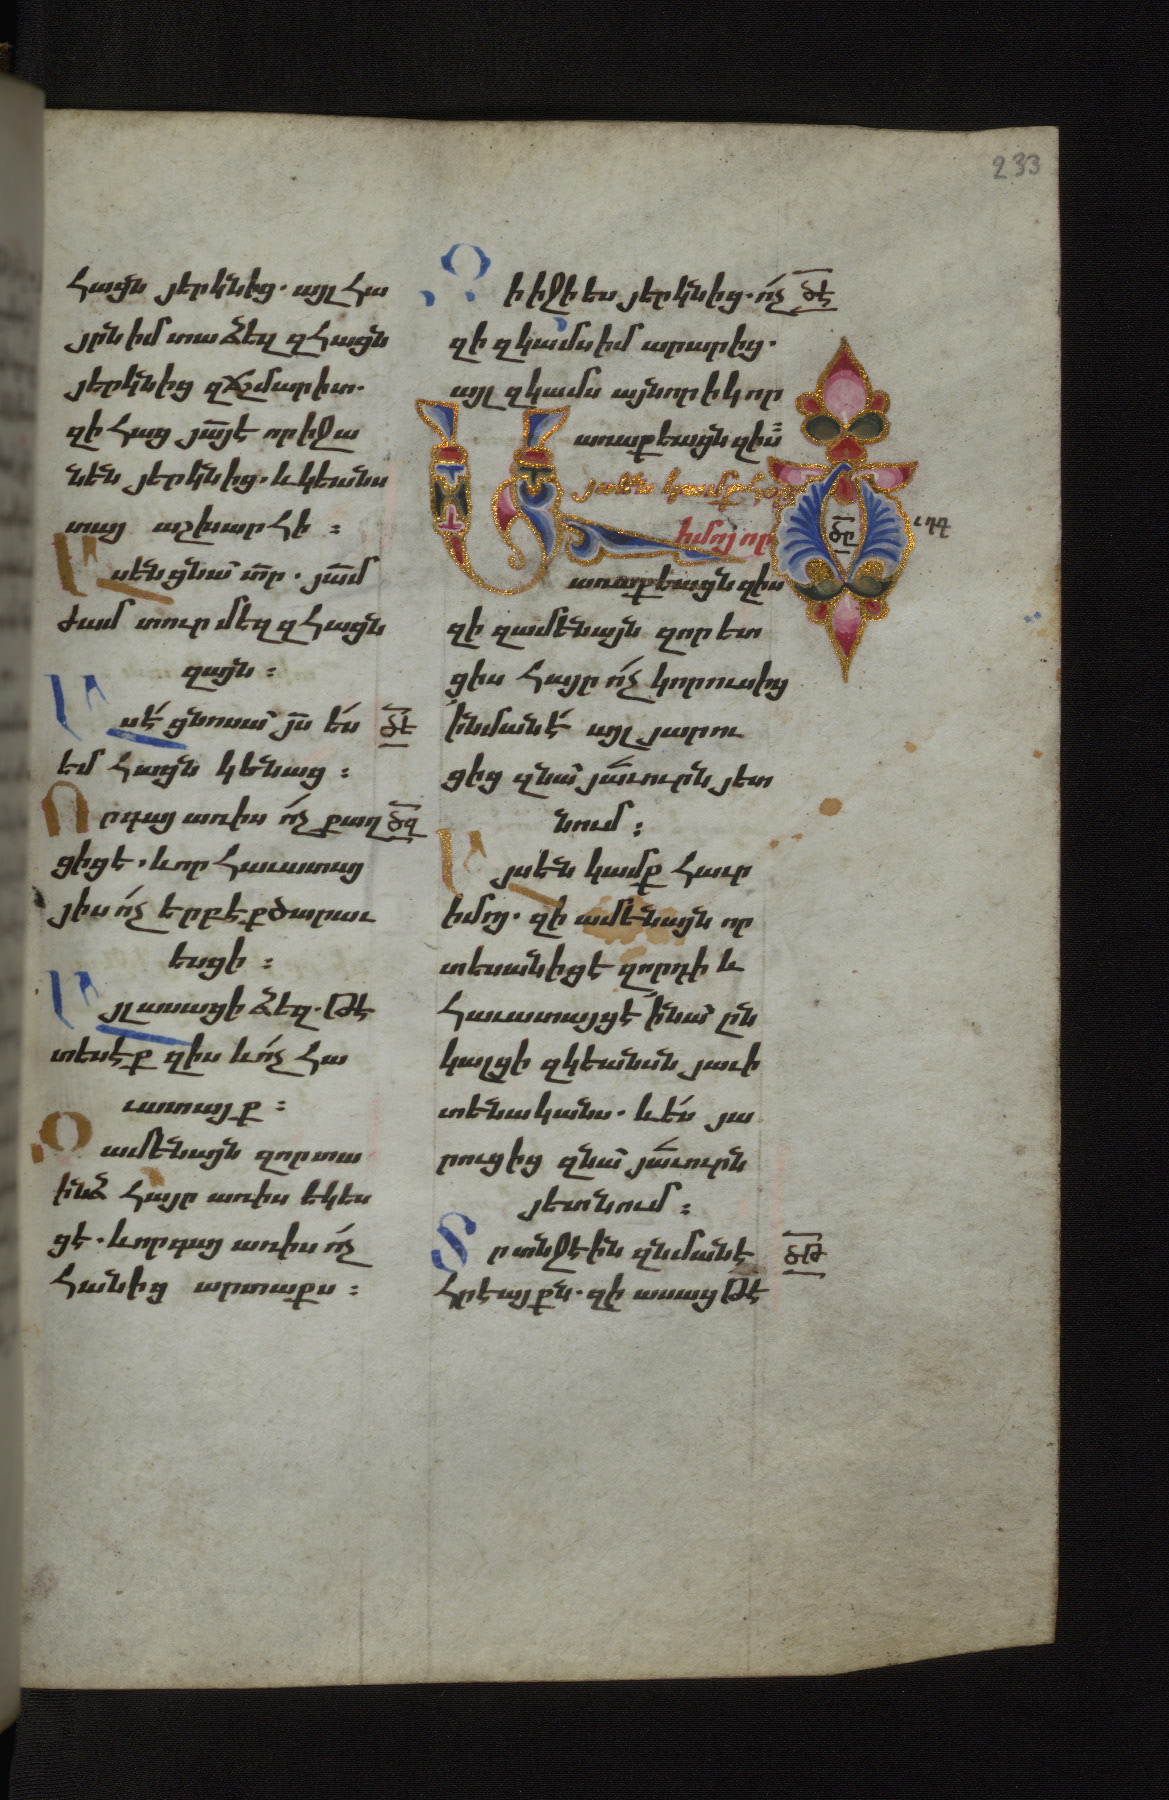 233
հացն յերկնից. այլ հա
յրն իմ տա ձեզ զհացն
յերկնից զճշմարիտ.
զի հաց յա՟յէ որ իջա
նեն յերկնից. և կեանս
տայ աշխարհի :
Ասեն ցնա՟ տ՟ր. յա՟մ
ժամ տուր մեզ զհացն
զայն :
Ասէ ցնոսա՟ յ՟ս ես ծ՟ե
եմ հացն կենաց :
Որ գայ առիս ոչ քաղ ծ՟զ
ցիցէ. և որ հաւատայ
յիս ոչ երբէք ծարաւ
եսցի :
Այլ ասացի ձեզ. թէ
տեսէք զիս և ոչ հա
ւատայք :
Զամենայն զոր տա
ինձ հայր առիս եկես
ցէ. և որ գայ առիս ոչ
հանից արտաքս :
Զի իջի ես յերկնից. ոչ ծ՟է
զի զկամս իմ արարից.
այլ զկամս այնորիկ որ
առաքեացն զիս՟
Այս են կամք հօր
իմոյ որ ծ՟ը
առաքեացն զիս
զի զամենայն զոր ետ
ցիս հայր ոչ կորուսից
ինմանէ այլ յարու
ցից զնա՟ յա՟ւուրն յետ
նում :
Այս են կամք հաւր
իմոյ. զի ամենայն որ
տեսանիցէ զորդի և
հաւատայցէ ինա՟ ըն
կալցի զկեանսն յաւի
տենականս. և ես յա
րուցից զնա՟ յա՟ւուրն
յետնում :
Տրտնջէին զնմանէ ծ՟թ
հրէայքն. զի ասաց թէ